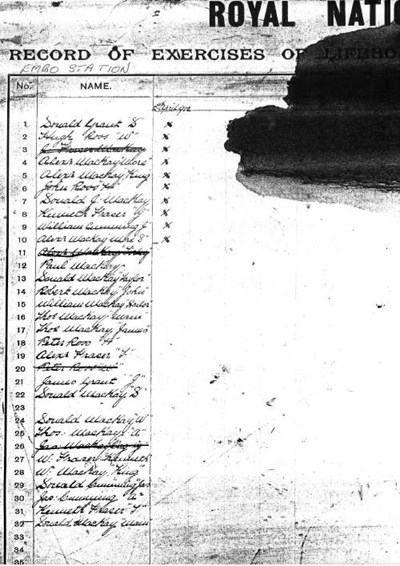 ROYAL NATIO
RECORD OF EXERCISES OF LIFEBO
EMBO STATION
No. NAME.
1 Donald Grant "D" x
2 Hugh Ross "W" x
3 x
4 Alexr Mackay x
5 Alexr Mackay, King x
6 John Ross "H" x
7 Donald J. Mackay x
8 Kenneth Fraser "G" x
9 William Cumming J. x
10 Alexr Mackay "S" x
11 Alexr Mackay
12 Paul Mackay
13 Donald Mackay
14 Robert Mackay "John"
15 William Mackay
16 Thos Mackay
17 Thos Mackay James
18 Peter Ross "H"
19 Alexr Fraser "F"
20 Peter Ross
21 James Grant "J"
22 Donald Mackay "D"
23
24 Donald Mackay "W"
25 Thos. Mackay, "A"
26 Mackay
27 W. Fraser, Kenneth
28 W. Mackay, "King"
29 Donald Cumming
30 Jas. Cumming "A"
31 Kenneth Fraser "F"
32 Donald Mackay
33
34
35